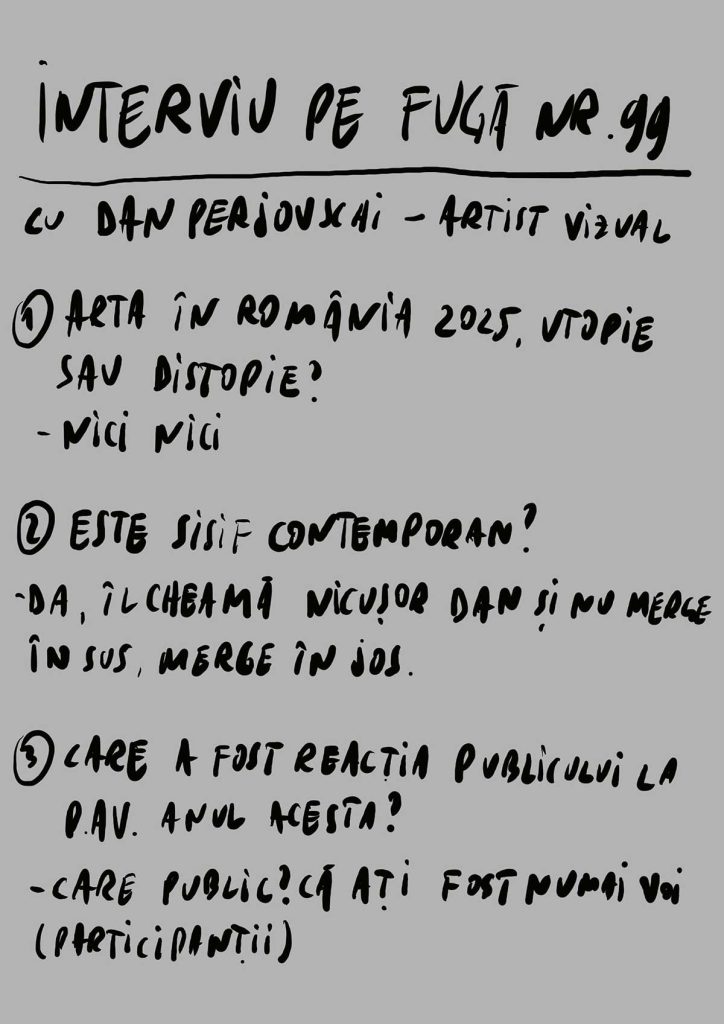 INTERVIU PE FUGĂ NR.99
CU DAN PERJOVSCHI - ARTIST VIZUAL
1 ARTA ÎN ROMÂNIA 2025, UTOPIE
SAU DISTOPIE?
- NICI NICI
2 ESTE SISIF CONTEMPORAN?
-DA, ÎL CHEAMĂ NICUȘOR DAN ȘI NU MERGE
ÎN SUS, MERGE ÎN JOS.
3 CARE A FOST REACȚIA PUBLICULUI LA
P.AV. ANUL ACESTA?
-CARE PUBLIC? CĂ AȚI FOST NUMAI VOI
(PARTICIPANȚII)